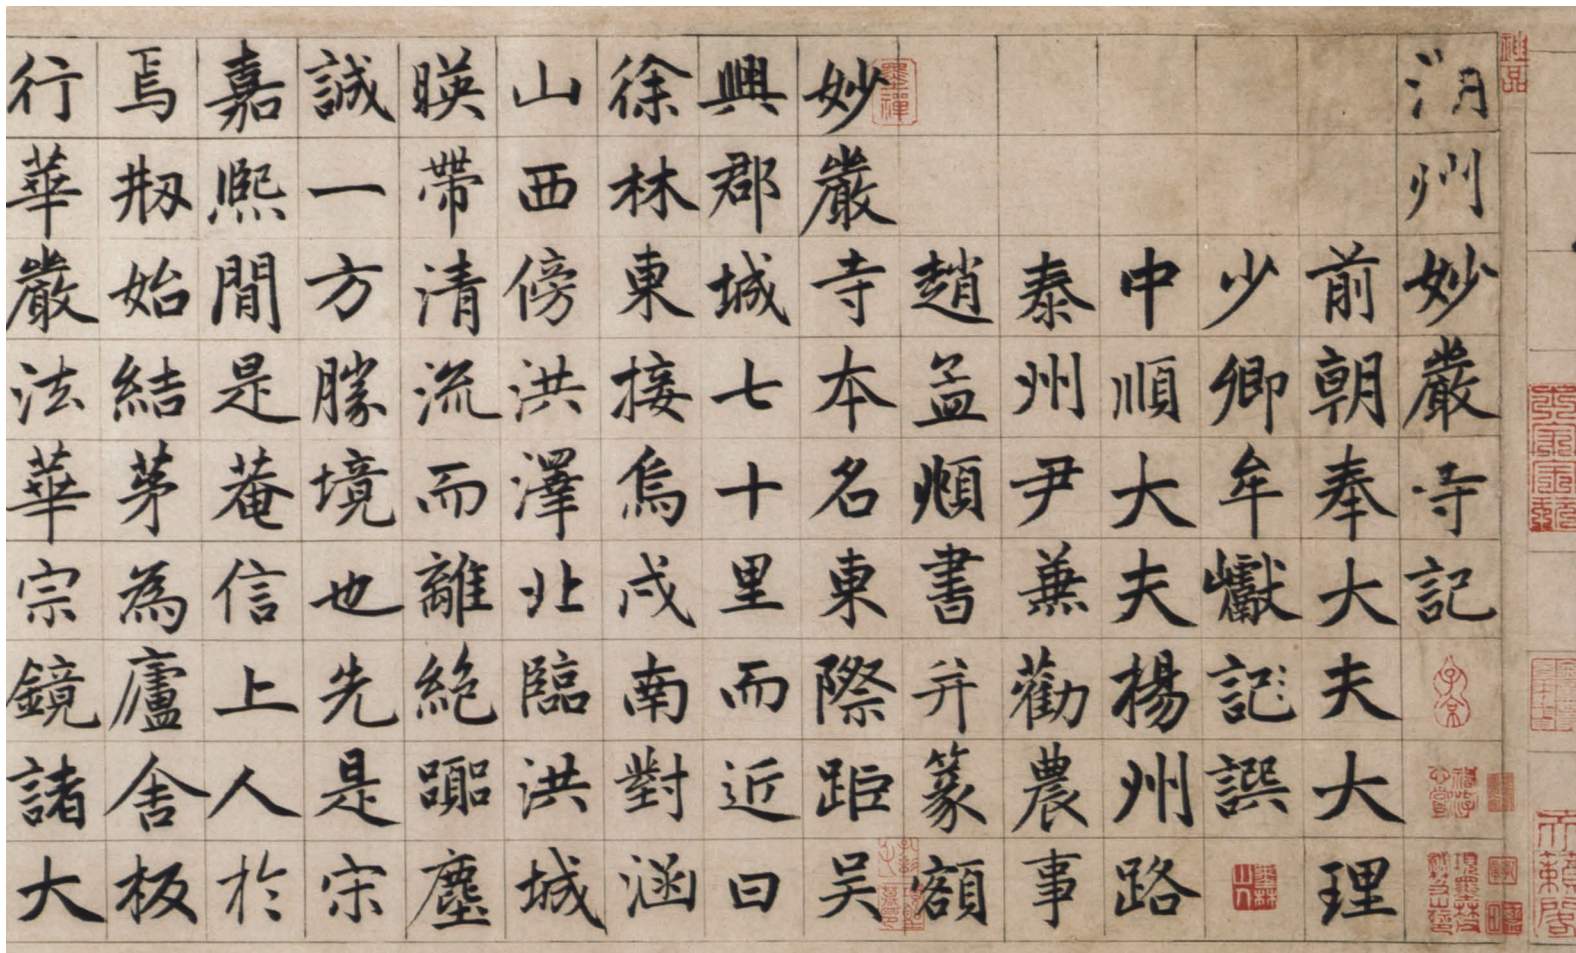 神品
湖州妙嚴寺記
前朝奉大夫大理
少卿牟巘記譔
中順大夫楊州路
泰州尹兼勸農事
趙孟頫書并篆額
墨禪
妙嚴寺本名東際距吴
興郡城七十里而近曰
徐林東接烏戍南對涵
山西傍洪澤北臨洪城
暎帶清流而離絶塵
誠一方勝境也先是宋
嘉熈間是菴信上人於
焉剏始結茅為廬舍板
行華嚴法華宗鏡諸大